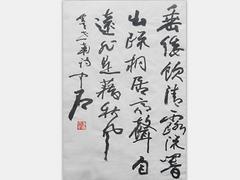 垂緌飲清露流響
出疏桐居高聲自
遠非是藉秋風
虞世南詩 中石